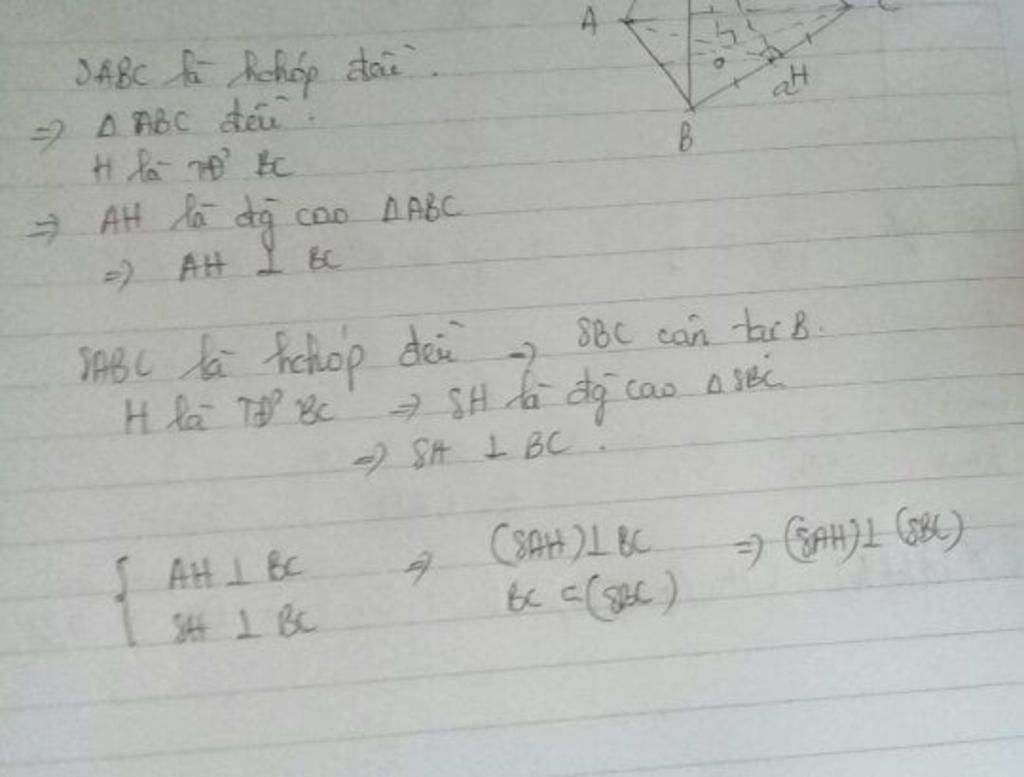 A
C
H
a
B
SABC là hchóp đều.
=> Δ ABC đều.
H là TĐ BC
=> AH là đg cao ΔABC
=> AH ⊥ BC
SABC là hchóp đều => SBC cân tại B.
H là TĐ BC => SH là đg cao ΔSBC
=> SH ⊥ BC.
{ AH ⊥ BC => (SAH) ⊥ BC => (SAH) ⊥ (SBC)
SH ⊥ BC BC ⊂ (SBC)